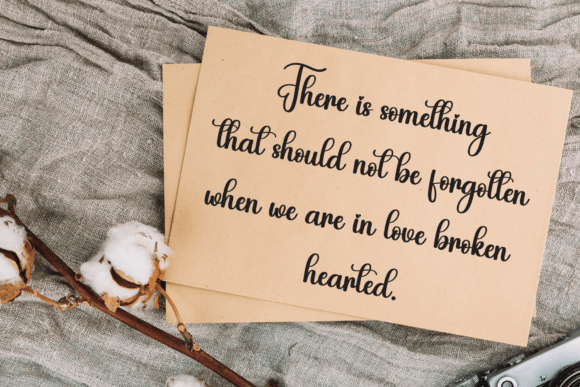 There is something
that should not be forgotten
when we are in love broken
hearted.